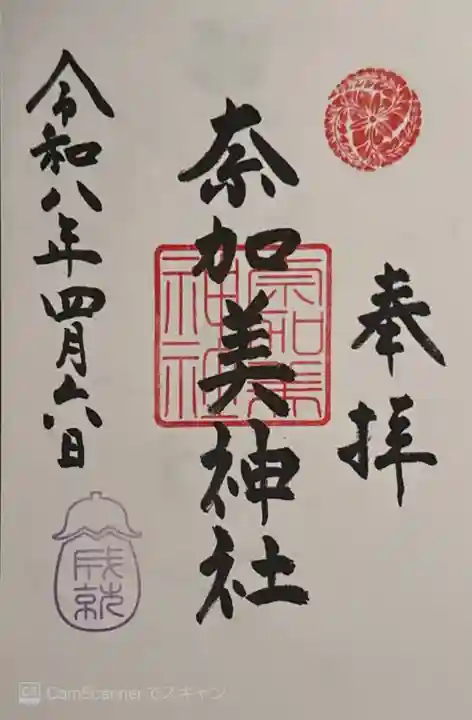 奉拝
奈加美神社
奈加美
神社
令和八年四月六日
成就
CS CamScannerでスキャン